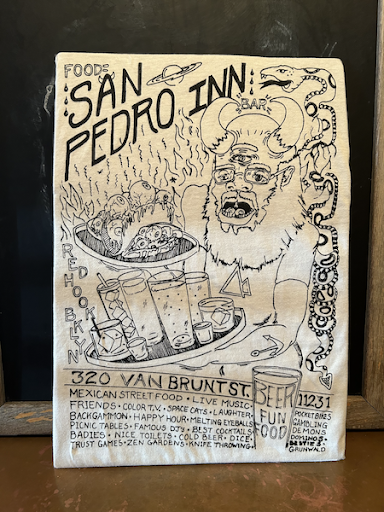 FOOD
SAN
PEDRO INN
BAR
RED HOOK BKLN
320 VAN BRUNT ST.
MEXICAN STREET FOOD • LIVE MUSIC
FRIENDS • COLOR T.V. • SPACE CATS • LAUGHTER
BACKGAMMON • HAPPY HOUR • MELTING EYEBALLS
PICNIC TABLES • FAMOUS DJ'S • BEST COCKTAILS
BADIES • NICE TOILETS • COLD BEER • DICE
TRUST GAMES • ZEN GARDENS • KNIFE THROWING
BEER
FUN
FOOD
11231
POCKET BIKES
GAMBLING
DEMONS
DOMINOS
BESTIES
GRUNWALD